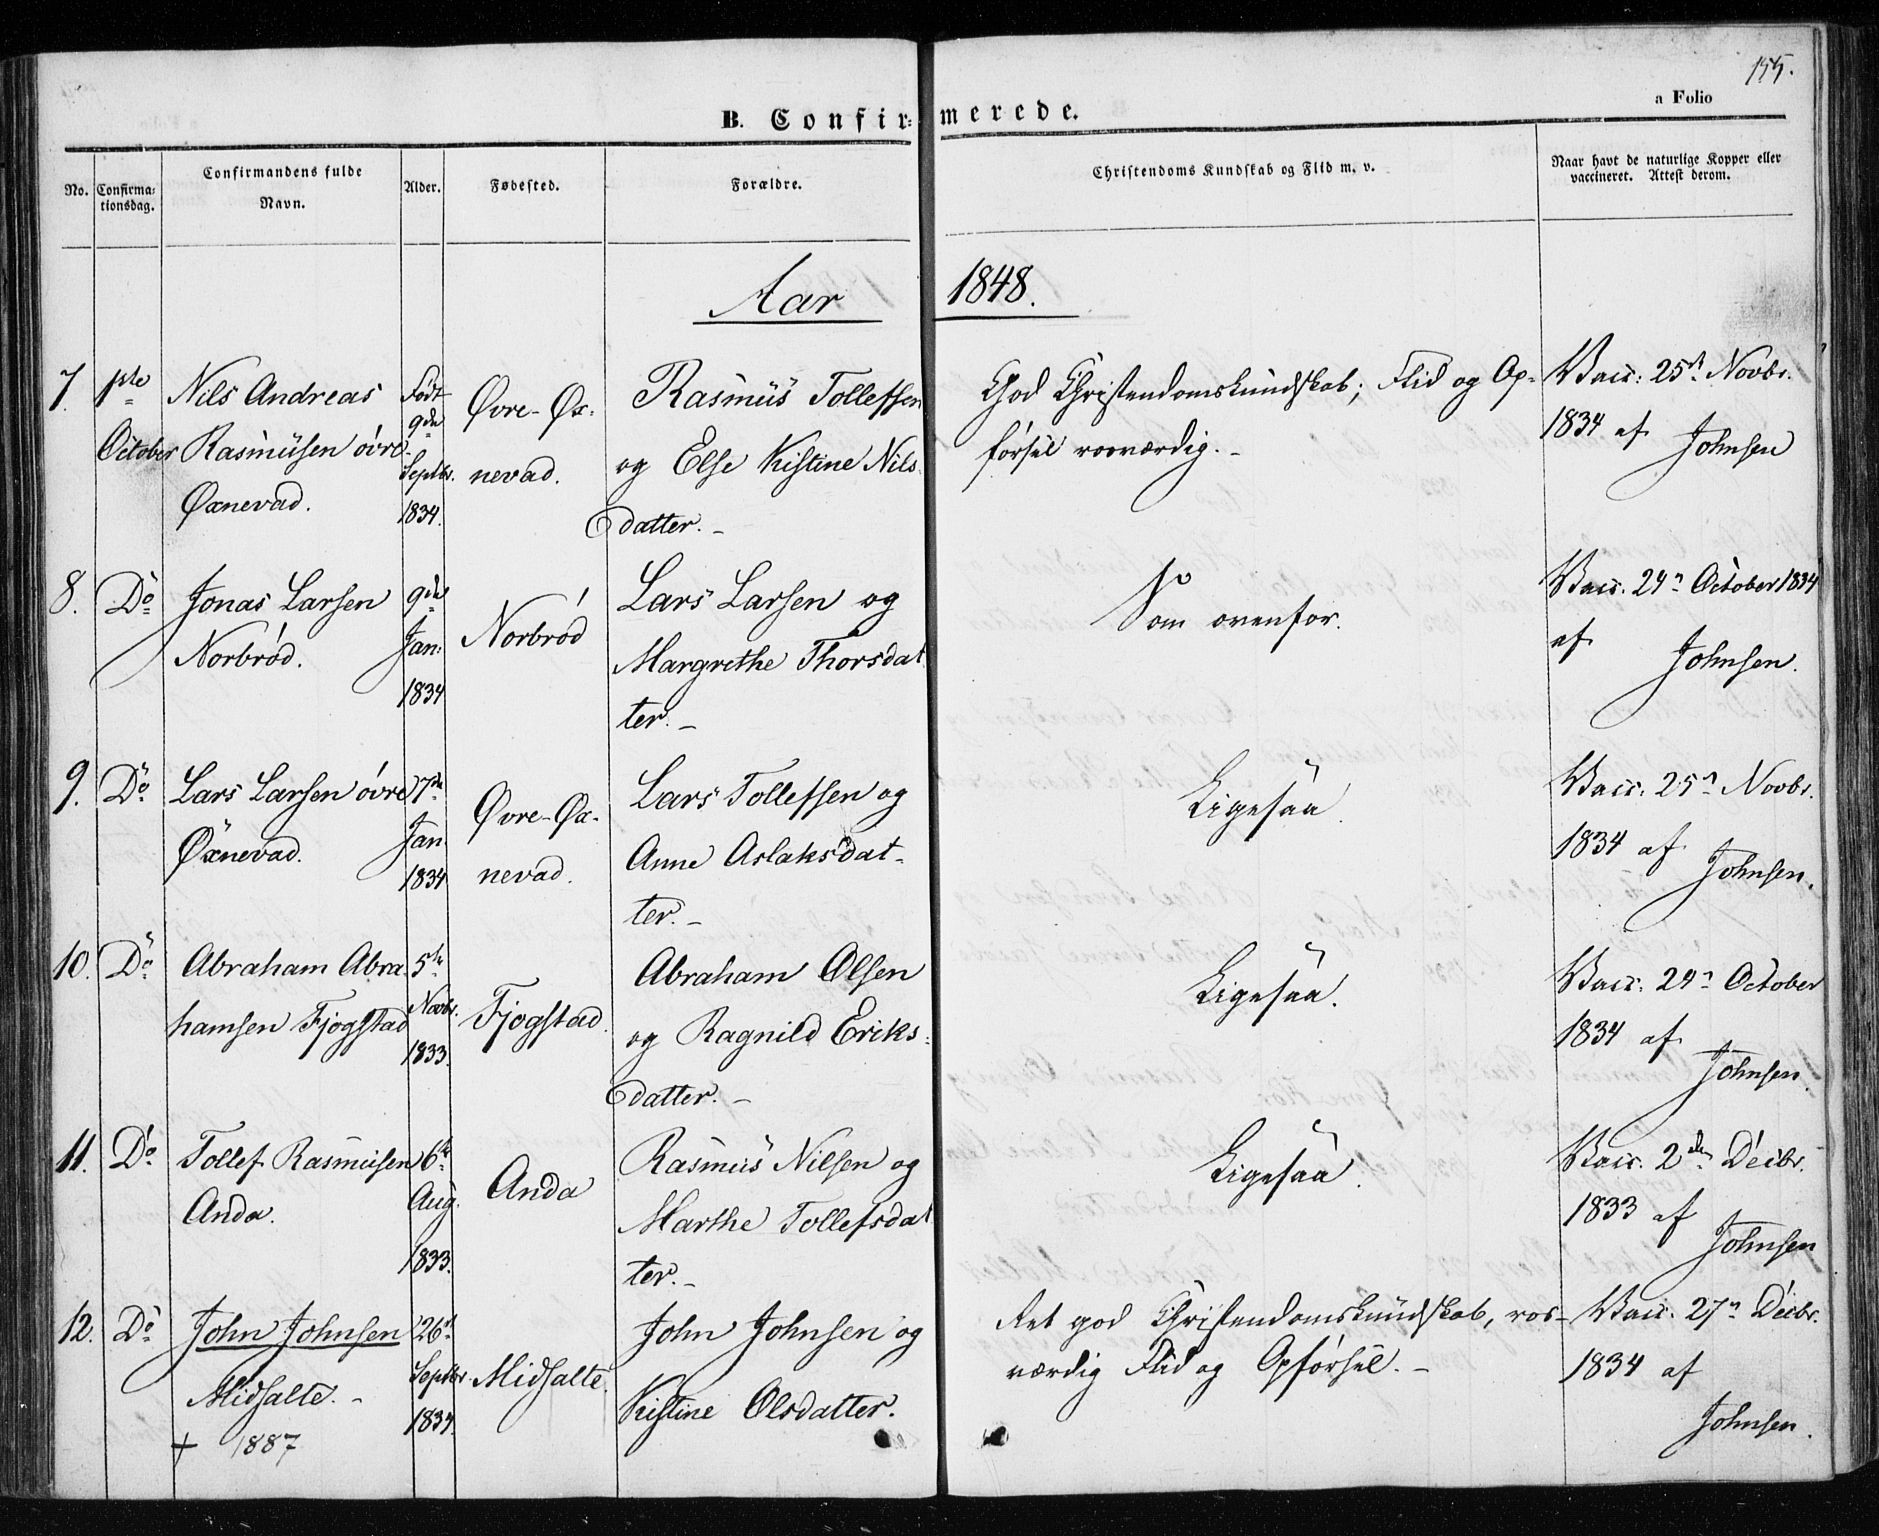 155.
a Folio
B. Confirmerede.
No.
Confirma:
tionsdag.
Confirmandens fulde
Navn.
Alder.
Fødested.
Forældre.
Christendoms Kundskab og Flid m. v.
Naar havt de naturlige Kopper eller
vaccineret. Attest derom.
Aar 1848.
7.
1ste
October
Nils Andreas
Rasmusen övre
Øxnevad.
Født
9de
Septbr.
1834.
Øvre-Øx-
nevad.
Rasmus Tollefsen
og Else Kistine Nils
datter. -
God Christendomskundskab; Flid og Op-
førsel rosværdig. -
Vacc: 25de Novbr.
1834 af
Johnsen
8.
Do
Jonas Larsen
Norbród.
9de
Jan:
1834
Norbród
Lars Larsen og
Margrethe Thorsdat
ter. -
Som ovenfor.
Vacc. 24n October 1834
af
Johnsen.
9.
Do
Lars Larsen övre
Øxnevad.
7de
Jan.
1834
Øvre-Øx-
nevad.
Lars Tollefsen og
Anne Aslaksdat-
ter. -
Ligesaa.
Vacc. 25n Novbr.
1834 af
Johnsen.
10.
Do
Abraham Abra
hamsen Fjogstad
5te
Novbr.
1833.
Fjogstad.
Abraham Olsen
og Ragnild Eriks-
datter. -
Ligesaa.
Vacc. 24n October
1834 af
Johnsen.
11.
Do
Tollef Rasmusen
Anda.
6te
Aug.
1833.
Anda
Rasmus Nilsen og
Marthe Tollefsdat
ter. -
Ligesaa.
Vacc. 2den Decbr.
1833 af
Johnsen
12.
Do
John Johnsen
Midsalte. -
+ 1887
26de
Septbr
1834.
Midsalte.
John Johnsen og
Kistine Olsdatter.
Ret god Christendomskundskab, ros-
værdig Flid og Opførsel. -
Vacc. 27n Decbr.
1834 af
Johnsen.